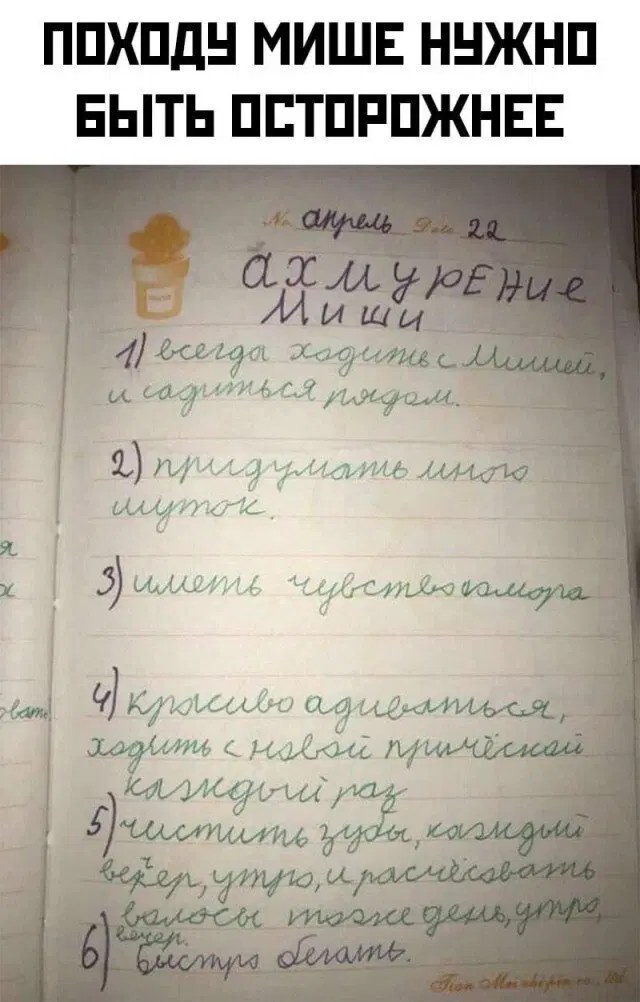 ПОХОДУ МИШЕ НУЖНО
БЫТЬ ОСТОРОЖНЕЕ
No. апрель Date 22
ахмурЕние
Миши
1) всегда ходить с Мишей,
и садиться рядом.
2) придумать много
шуток.
3) иметь чувство юмора
4) красиво адиваться,
ходить с новой причёской
каждый раз
5) чистить зубы, каждый
вечер, утро, и расчёсовать
волосы тоже день, утро,
вечер.
6) быстро бегать.
я
х
овать